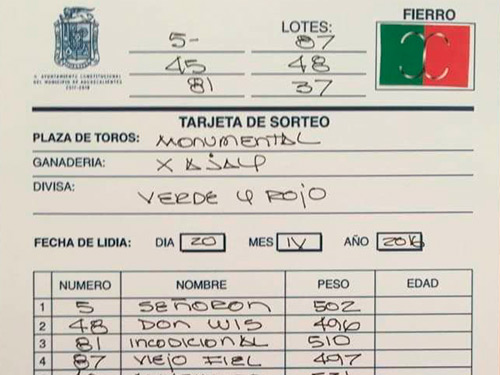 FIERRO
LOTES:
5- 87
45 48
81 37
H. AYUNTAMIENTO CONSTITUCIONAL
DEL MUNICIPIO DE AGUASCALIENTES
2017-2019
TARJETA DE SORTEO
PLAZA DE TOROS: MONUMENTAL
GANADERIA: XAJAY
DIVISA: VERDE Y ROJO
FECHA DE LIDIA: DIA 20 MES IV AÑO
NUMERO NOMBRE PESO EDAD
1 5 SEÑORON 502
2 48 DON LUIS 496
3 81 INCODICIONAL 510
4 87 VIEJO FIEL 497